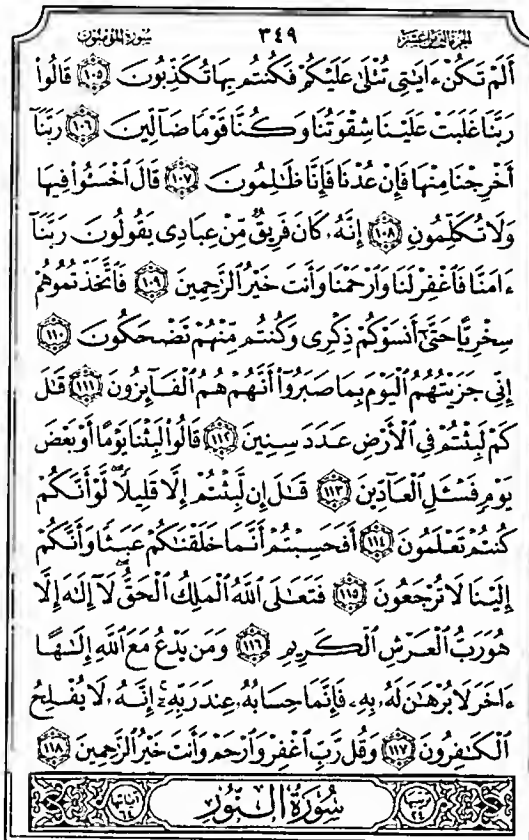 الجزء الثامن عشر ٣٤٩ سورة المؤمنون
أَلَمْ تَكُنْ ءَايَٰتِى تُتْلَىٰ عَلَيْكُمْ فَكُنتُم بِهَا تُكَذِّبُونَ ١٠٥ قَالُوا۟
رَبَّنَا غَلَبَتْ عَلَيْنَا شِقْوَتُنَا وَكُنَّا قَوْمًا ضَآلِّينَ ١٠٦ رَبَّنَآ
أَخْرِجْنَا مِنْهَا فَإِنْ عُدْنَا فَإِنَّا ظَٰلِمُونَ ١٠٧ قَالَ ٱخْسَـُٔوا۟ فِيهَا
وَلَا تُكَلِّمُونِ ١٠٨ إِنَّهُۥ كَانَ فَرِيقٌ مِّنْ عِبَادِى يَقُولُونَ رَبَّنَآ
ءَامَنَّا فَٱغْفِرْ لَنَا وَٱرْحَمْنَا وَأَنتَ خَيْرُ ٱلرَّٰحِمِينَ ١٠٩ فَٱتَّخَذْتُمُوهُمْ
سِخْرِيًّا حَتَّىٰٓ أَنسَوْكُمْ ذِكْرِى وَكُنتُم مِّنْهُمْ تَضْحَكُونَ ١١٠
إِنِّى جَزَيْتُهُمُ ٱلْيَوْمَ بِمَا صَبَرُوٓا۟ أَنَّهُمْ هُمُ ٱلْفَآئِزُونَ ١١١ قَٰلَ
كَمْ لَبِثْتُمْ فِى ٱلْأَرْضِ عَدَدَ سِنِينَ ١١٢ قَالُوا۟ لَبِثْنَا يَوْمًا أَوْ بَعْضَ
يَوْمٍ فَسْـَٔلِ ٱلْعَآدِّينَ ١١٣ قَٰلَ إِن لَّبِثْتُمْ إِلَّا قَلِيلًا لَّوْ أَنَّكُمْ
كُنتُمْ تَعْلَمُونَ ١١٤ أَفَحَسِبْتُمْ أَنَّمَا خَلَقْنَٰكُمْ عَبَثًا وَأَنَّكُمْ
إِلَيْنَا لَا تُرْجَعُونَ ١١٥ فَتَعَٰلَى ٱللَّهُ ٱلْمَلِكُ ٱلْحَقُّ لَآ إِلَٰهَ إِلَّا
هُوَ رَبُّ ٱلْعَرْشِ ٱلْكَرِيمِ ١١٦ وَمَن يَدْعُ مَعَ ٱللَّهِ إِلَٰهًا
ءَاخَرَ لَا بُرْهَٰنَ لَهُۥ بِهِۦ فَإِنَّمَا حِسَابُهُۥ عِندَ رَبِّهِۦٓ إِنَّهُۥ لَا يُفْلِحُ
ٱلْكَٰفِرُونَ ١١٧ وَقُل رَّبِّ ٱغْفِرْ وَٱرْحَمْ وَأَنتَ خَيْرُ ٱلرَّٰحِمِينَ ١١٨
ترتيبها ٢٤ سُورَةُ ٱلنُّورِ آياتها ٦٤